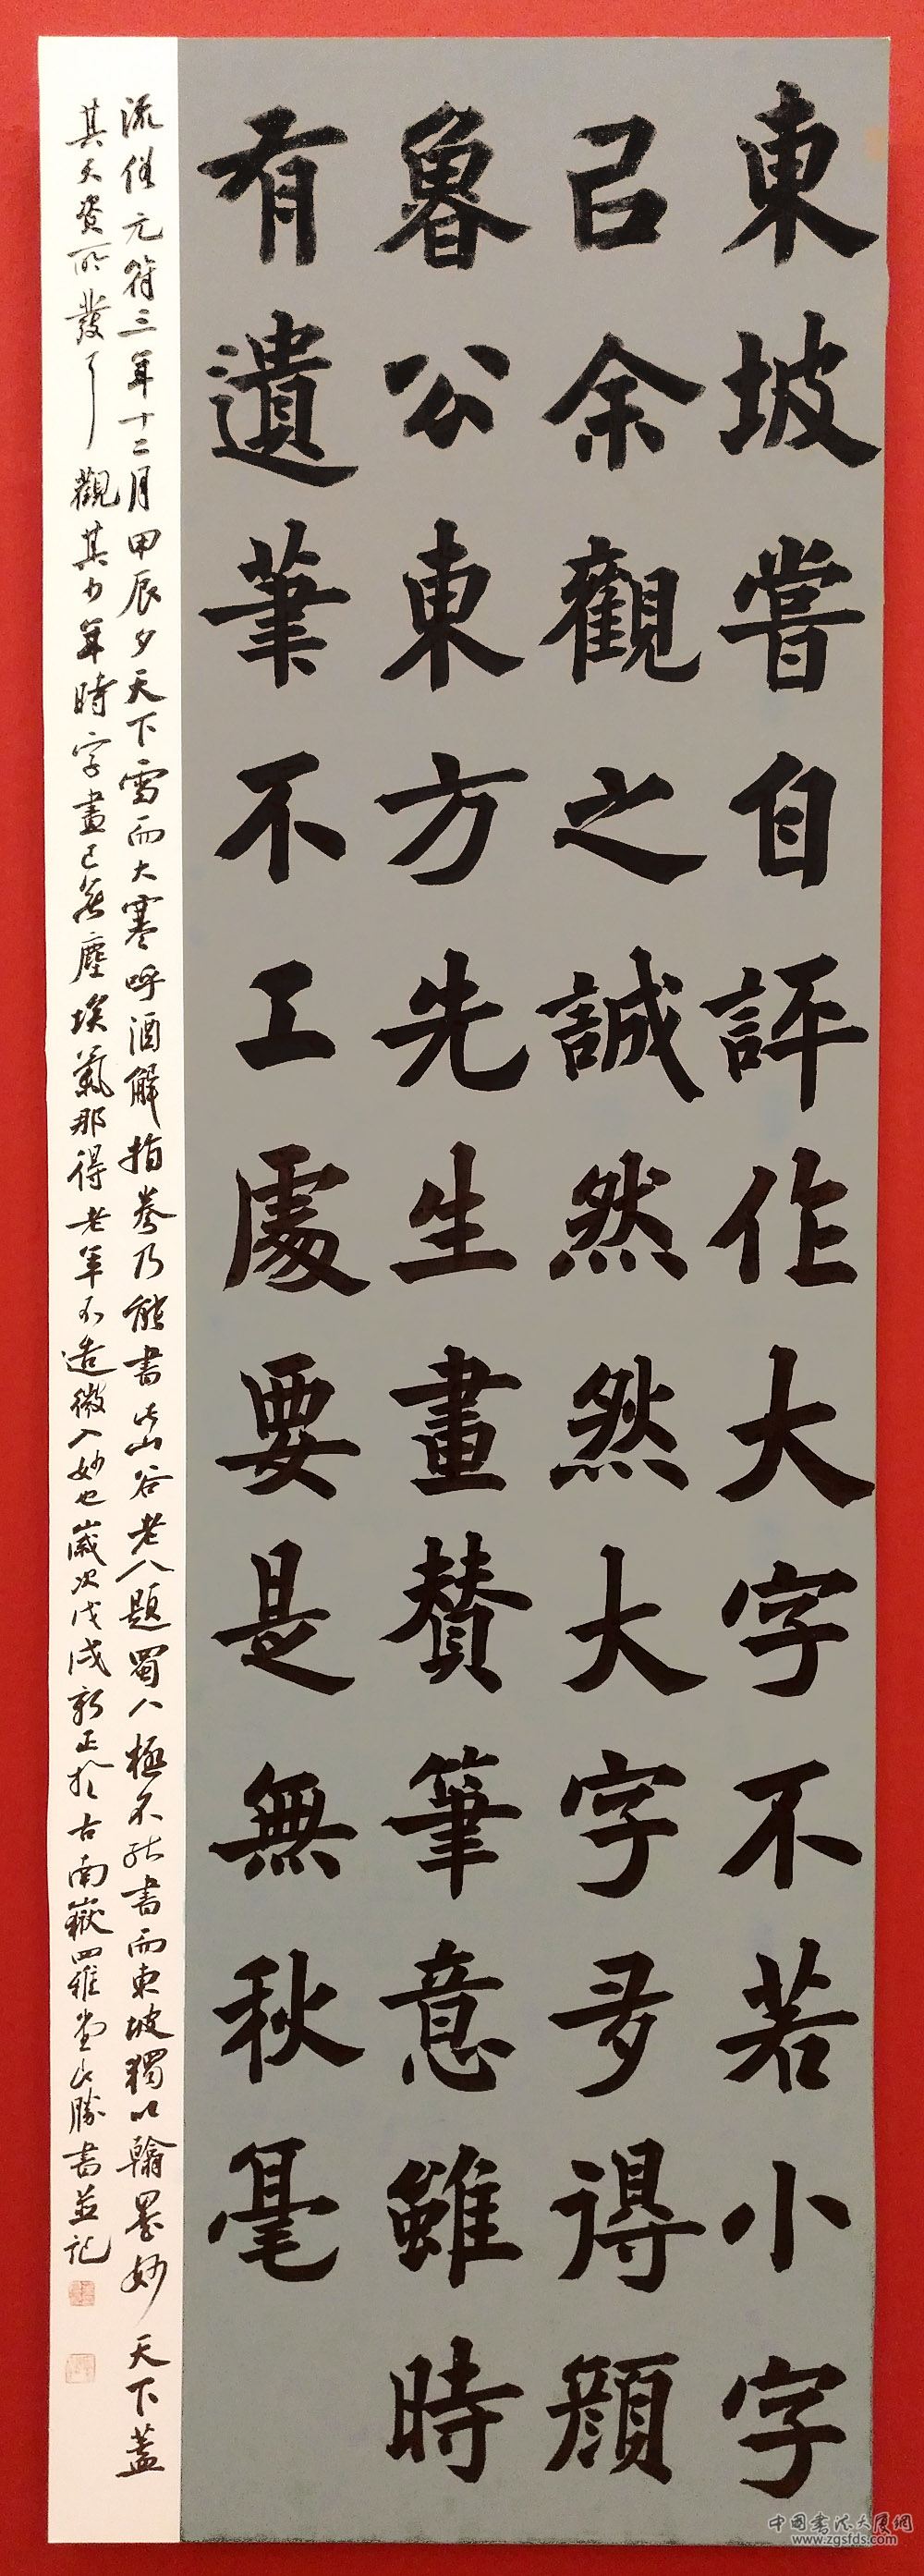 東坡嘗自評作大字不若小字
已余觀之誠然然大字多得顏
魯公東方先生畫賛筆意雖時
有遺筆不工處要是無秋毫
流俗元符三年十二月甲辰夕天下雪而大寒呼酒解指拳乃能書此山谷老人題蜀人極不能書而東坡獨以翰墨妙天下蓋
其天資所發耳觀其少年時字畫已無塵埃氣那得老年不造微入妙也歲次戊戌新正於古南嶽四維堂 勝書並記
中国书法大展网
www.zgsfds.com